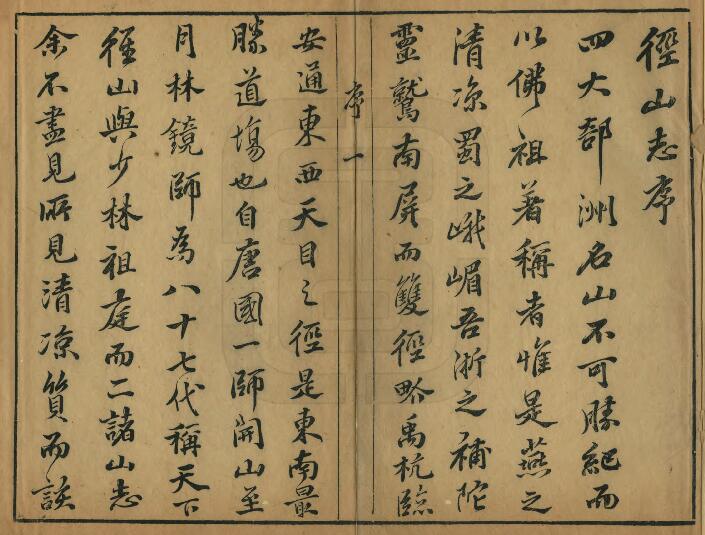 徑山志序
四大部洲名山不可勝紀而
以佛祖著稱者惟是燕之
清涼蜀之峨嵋吾浙之補陀
靈鷲南屏而雙徑畍禹杭臨
序 一
安通東西天目之徑是東南最
勝道塲也自唐國一師開山至
月林鏡師爲八十七代稱天下
徑山與少林祖庭而二諸山志
余不盡見所見清凉質而談